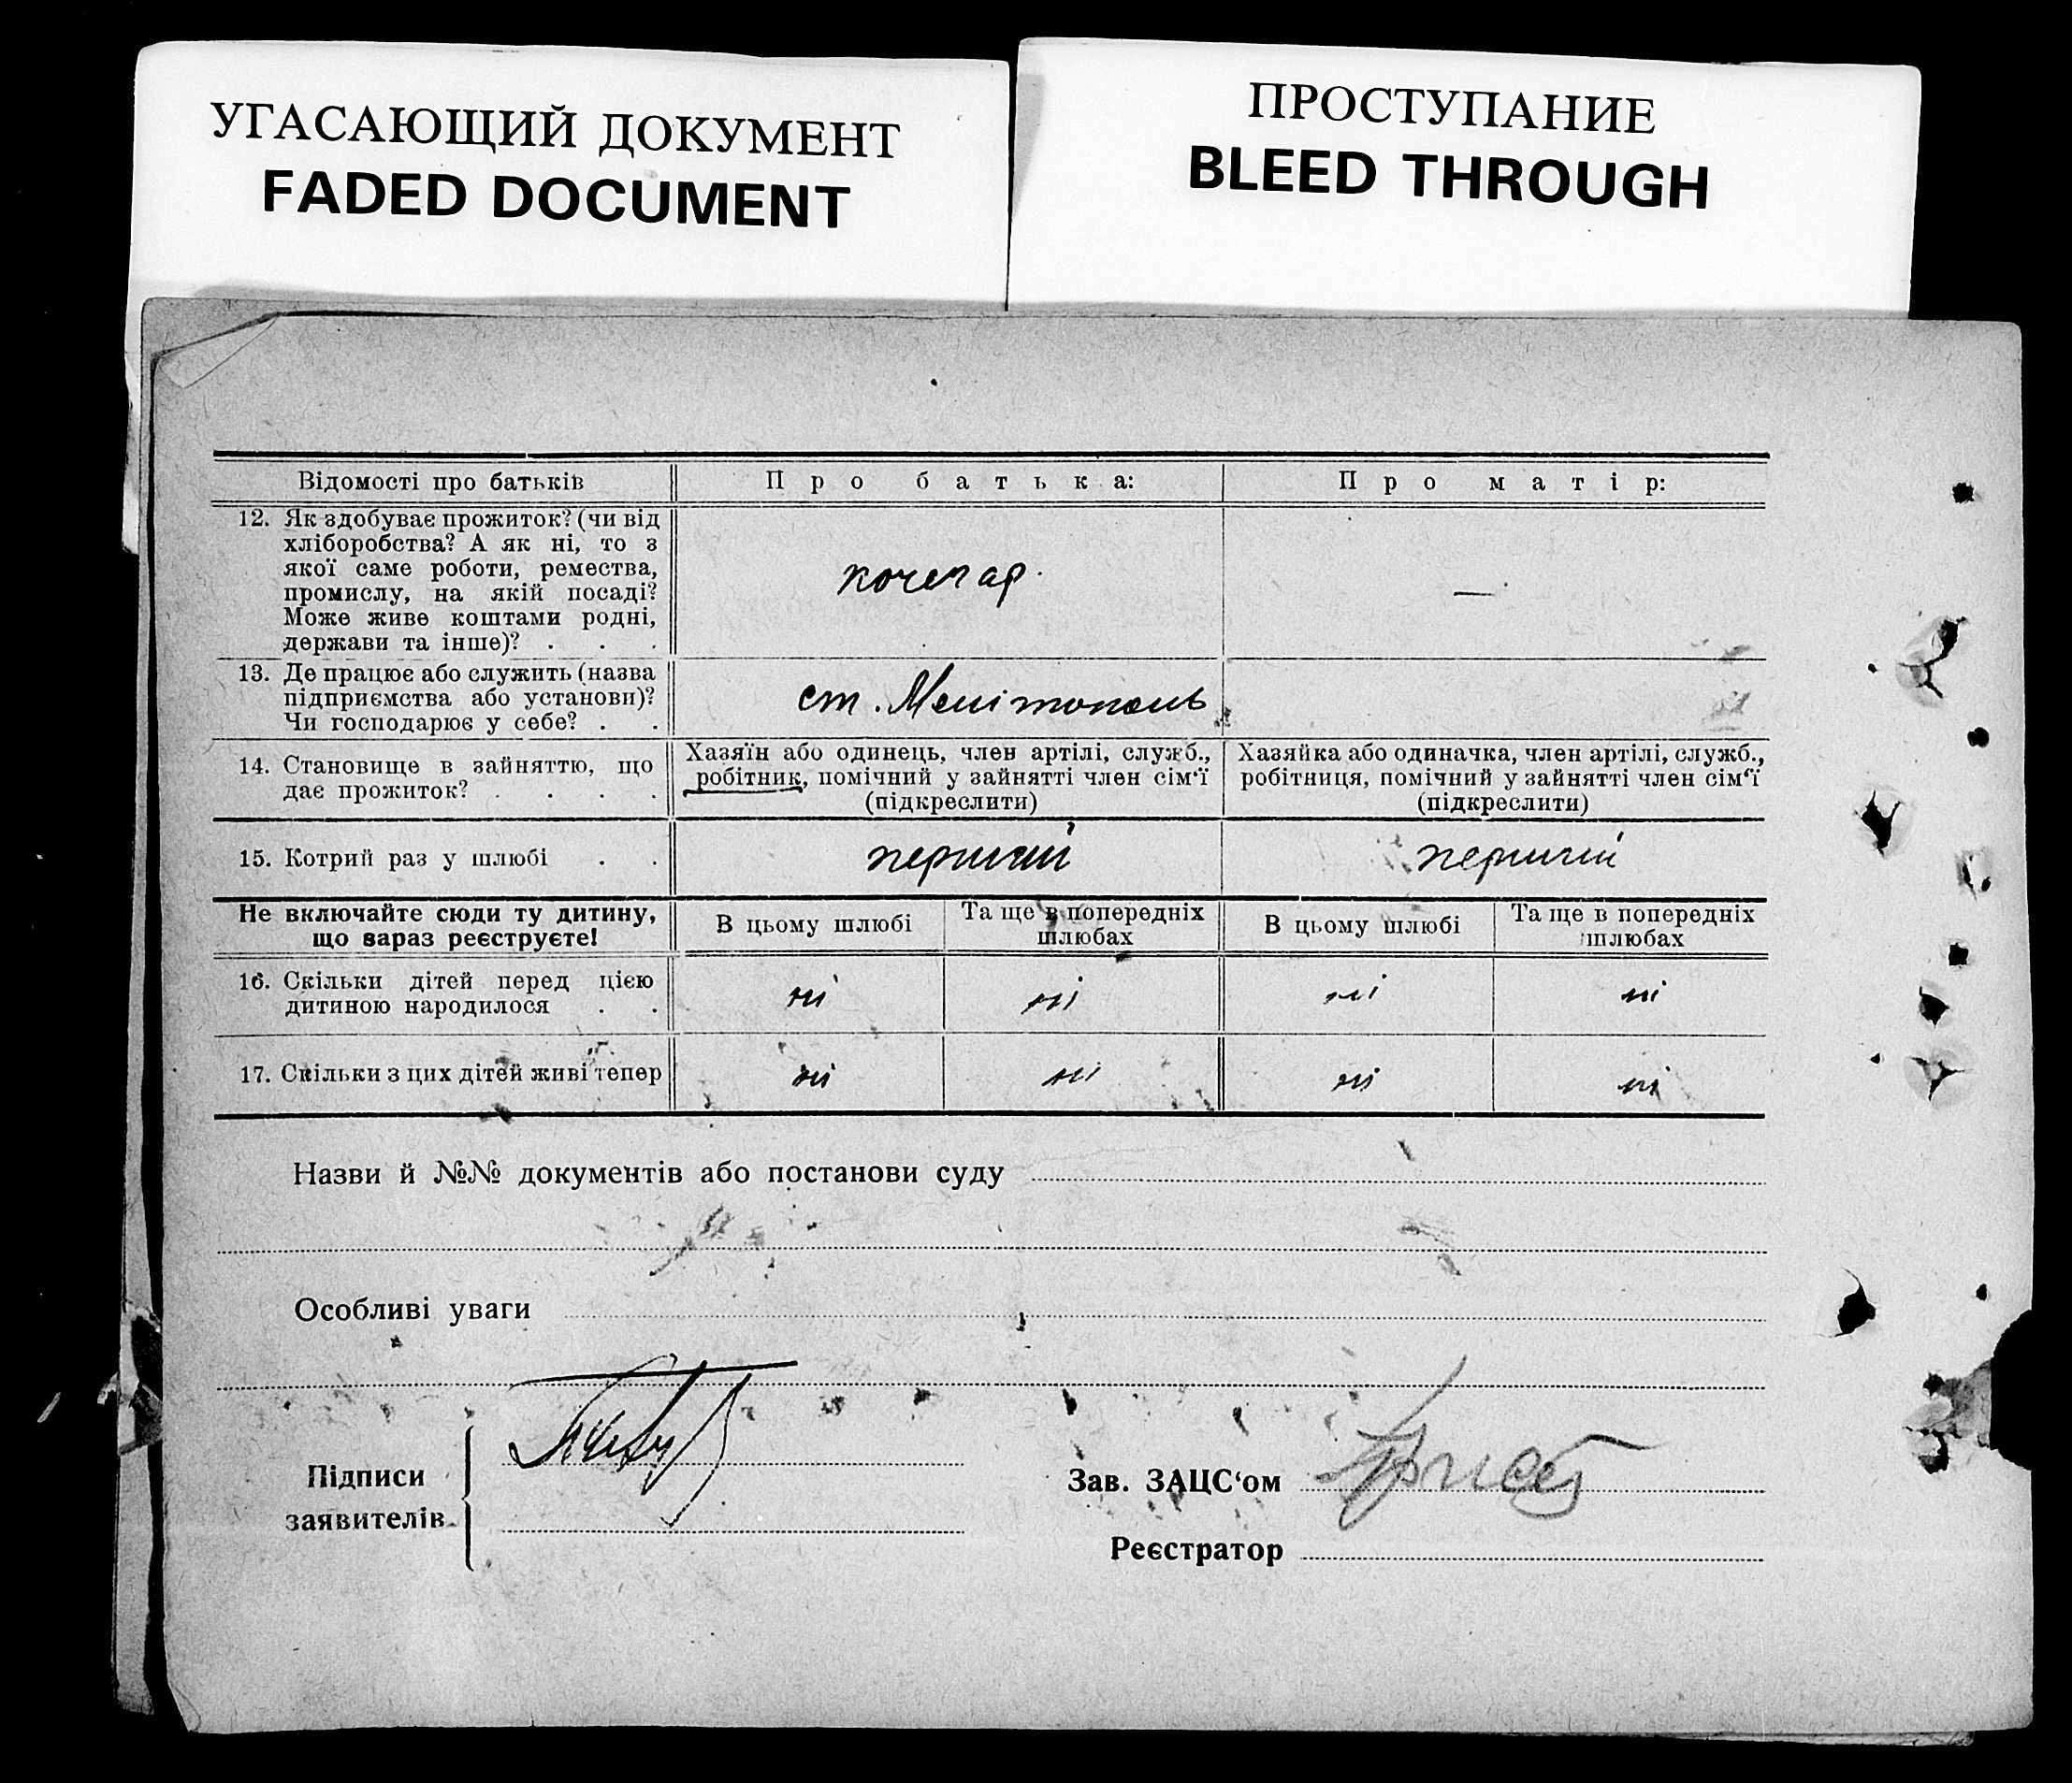 УГАСАЮЩИЙ ДОКУМЕНТ
FADED DOCUMENT
ПРОСТУПАНИЕ
BLEED THROUGH
Відомості про батьків
Про батька:
Про матір:
12. Як здобуває прожиток? (чи від
хліборобства? А як ні, то з
якої саме роботи, ремества,
промислу, на якій посаді?
Може живе коштами родні,
держави та інше)? . . .
кочегар.
—
13. Де працює або служить (назва
підприємства або установи)?
Чи господарює у себе? . .
ст. Мелітополь
14. Становище в зайняттю, що
дає прожиток? . . . .
Хазяїн або одинець, член артілі, служб.,
робітник, помічний у зайнятті член сім‘ї
(підкреслити)
Хазяйка або одиначка, член артілі, служб.,
робітниця, помічний у зайнятті член сім‘ї
(підкреслити)
15. Котрий раз у шлюбі . .
перший
перший
Не включайте сюди ту дитину,
що вараз реєструєте!
В цьому шлюбі
Та ще в попередніх
шлюбах
В цьому шлюбі
Та ще в попередніх
шлюбах
16. Скільки дітей перед цією
дитиною народилося . .
ні
ні
ні
ні
17. Скільки з цих дітей живі тепер
ні
ні
ні
ні
Назви й №№ документів або постанови суду
Особливі уваги
Підписи
заявителів
Зав. ЗАЦС‘ом
Реєстратор